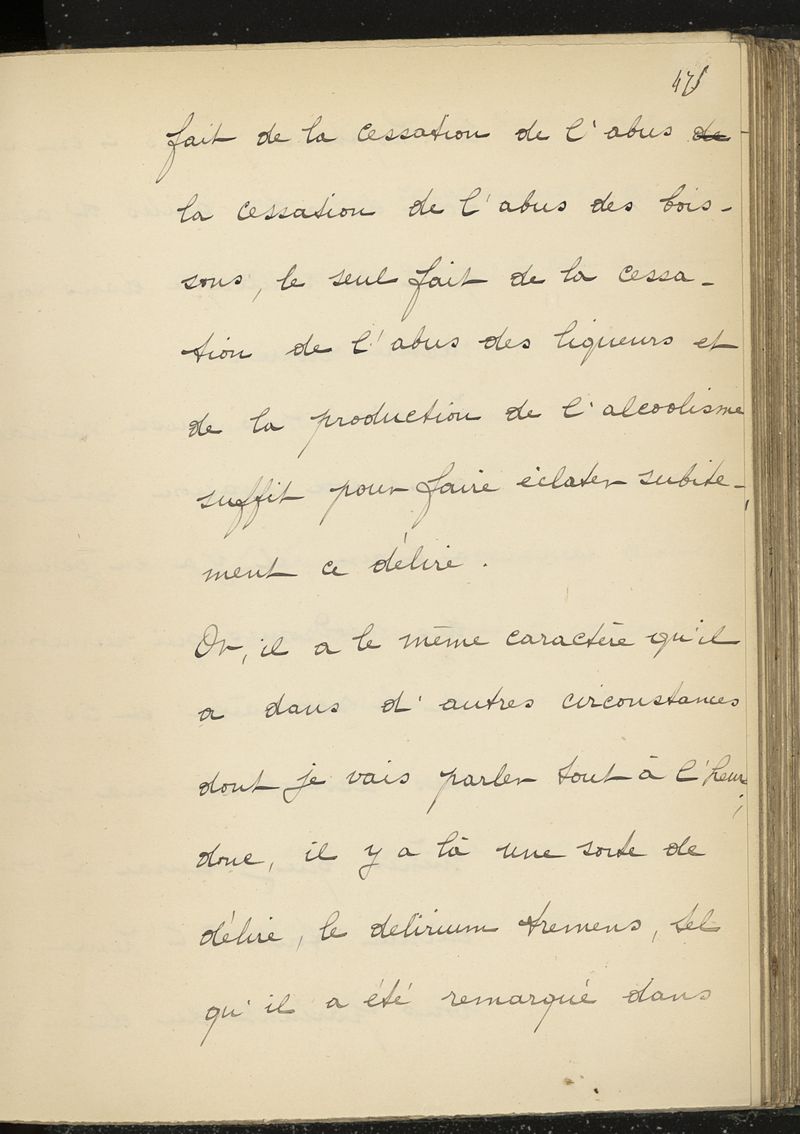 475
fait de la cessation de l'abus de
la cessation de l'abus des bois-
sons, le seul fait de la cessa-
tion de l'abus des liqueurs et
de la production de l'alcoolisme
suffit pour faire éclater subite-
ment ce délire.
Or, il a le même caractère qu'il
a dans d'autres circonstances
dont je vais parler tout à l'heure;
donc, il y a là une sorte de
délire, le delirium tremens, tel
qu'il a été remarqué dans